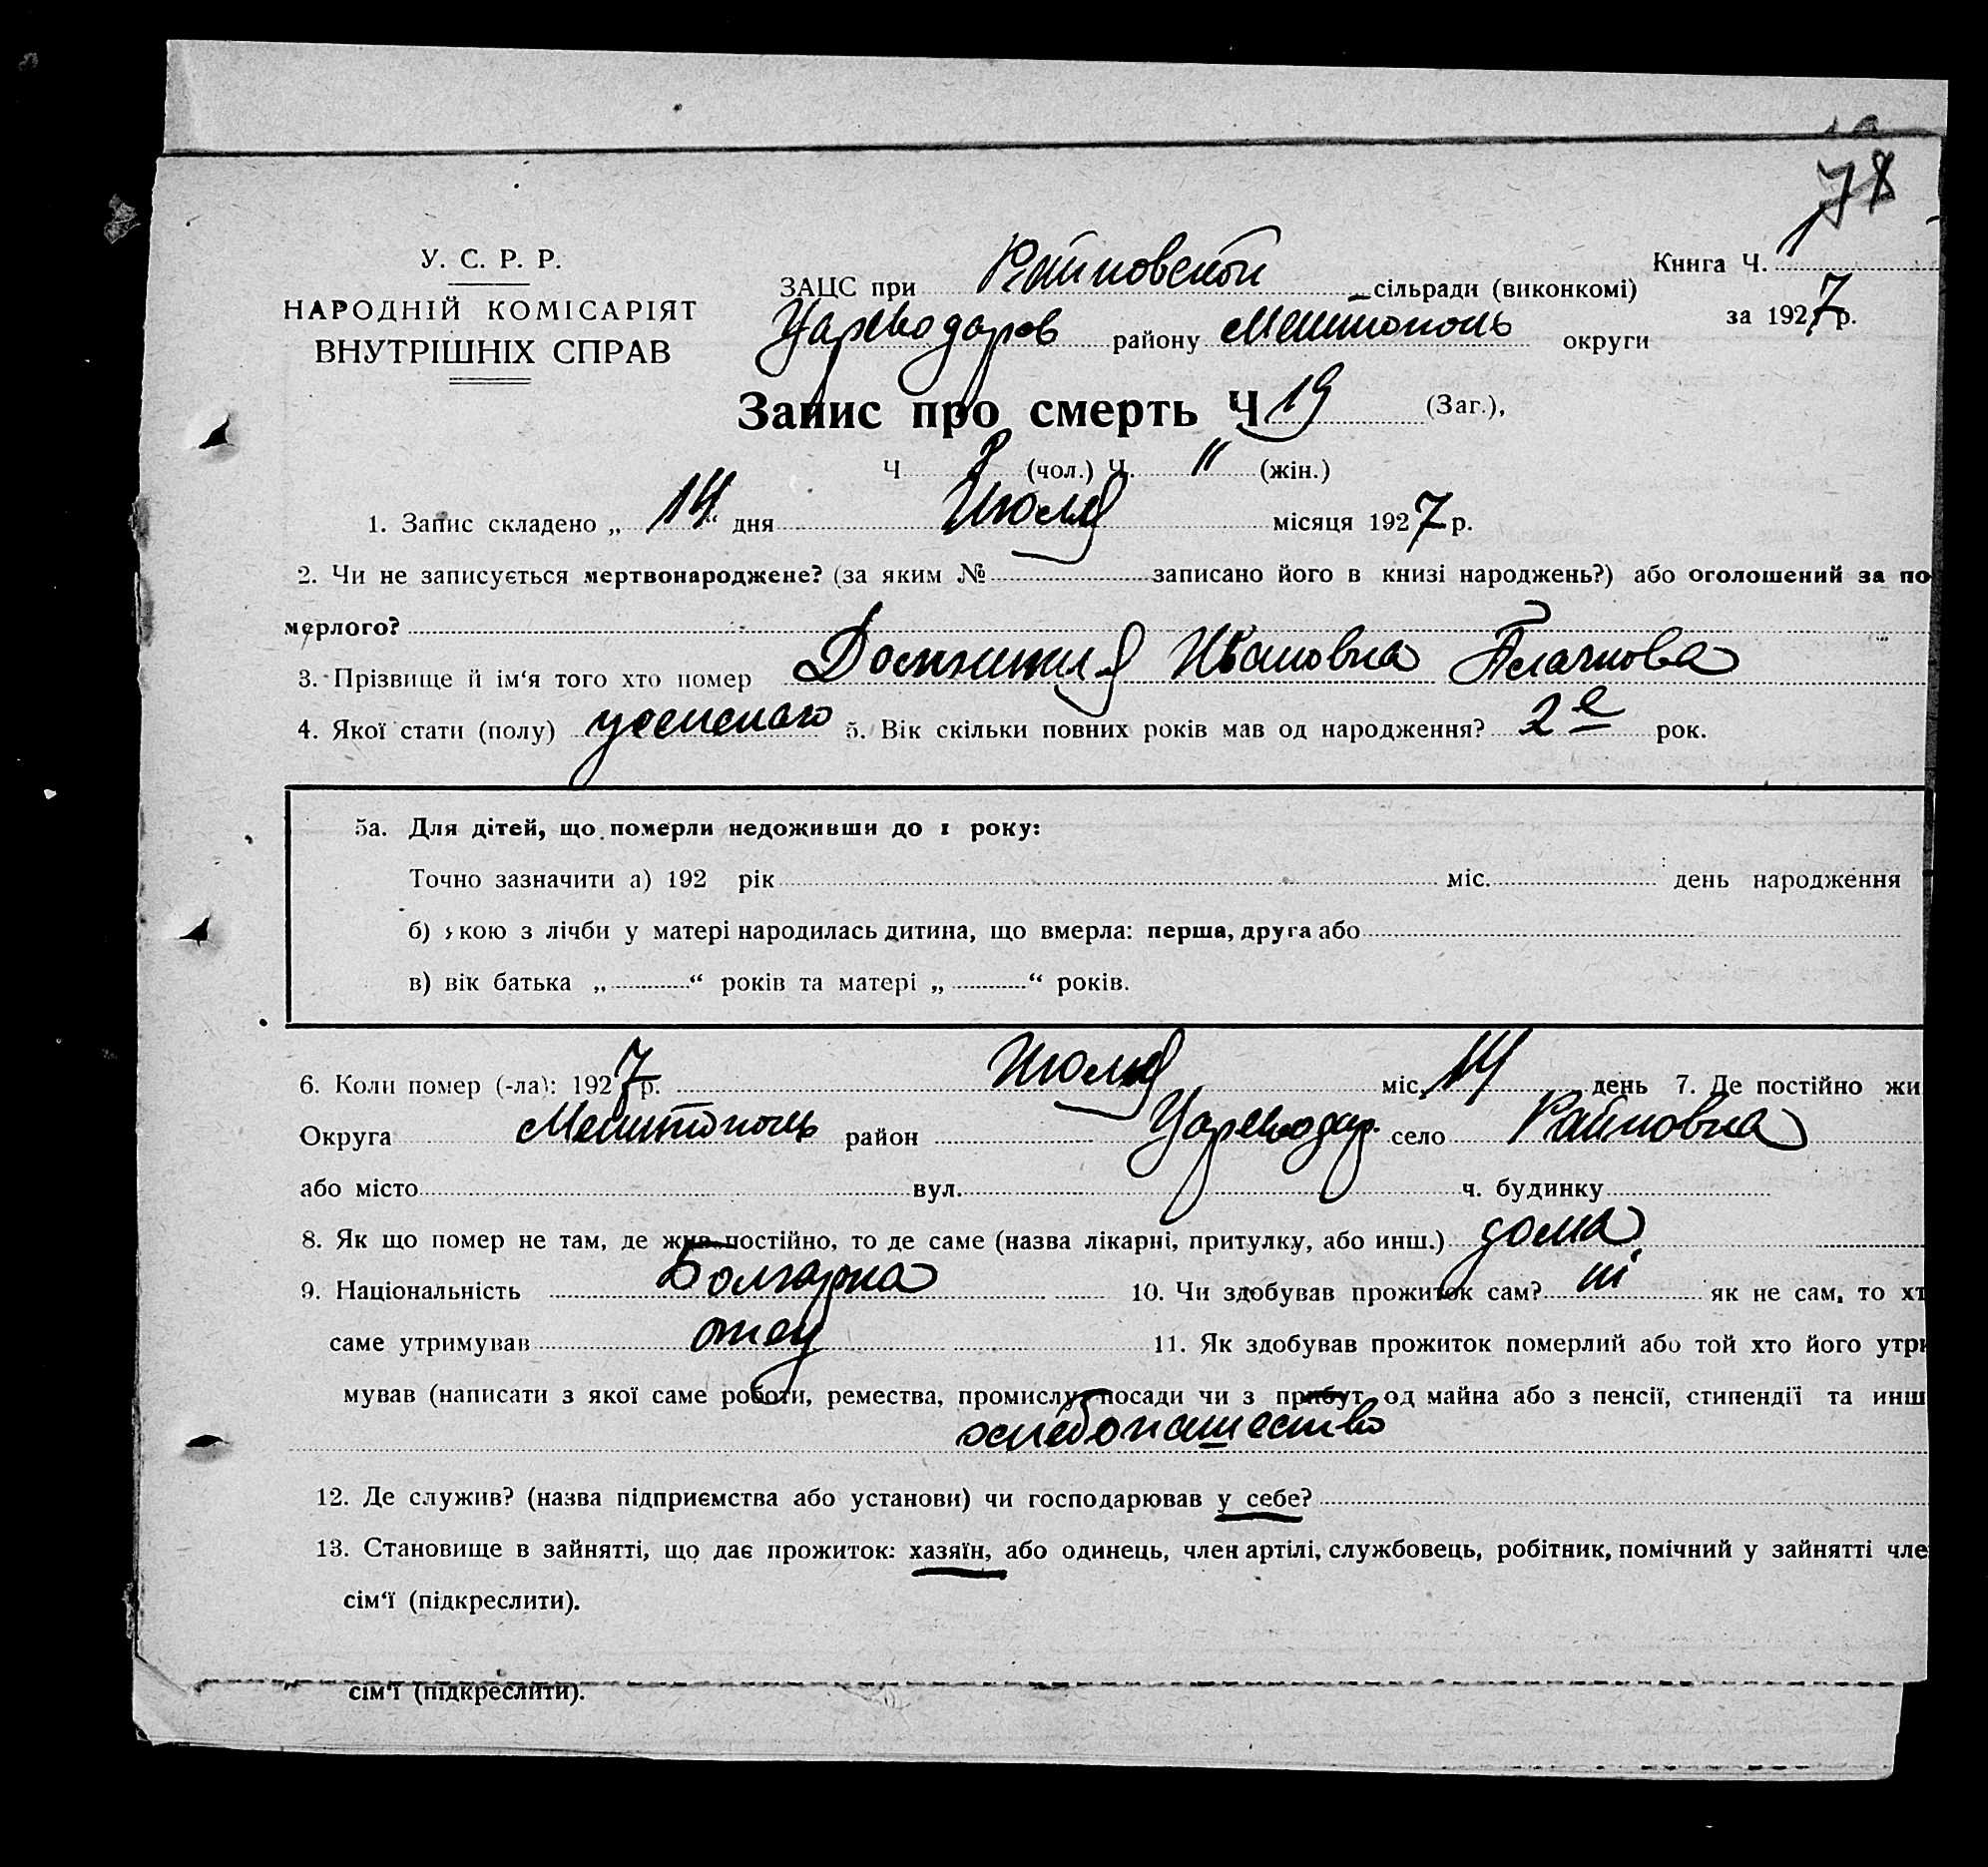 78
У. С. Р. Р.
НАРОДНІЙ КОМІСАРІЯТ
ВНУТРІШНІХ СПРАВ
ЗАЦС при Райновской сільради (виконкомі)
Книга Ч. 1
Цареводаров району Мелитополь округи
за 1927 р.
Запис про смерть Ч 19 (Заг.),
Ч 8 (чол.) Ч. 11 (жін.)
1. Запис складено „ 14 “ дня Июля місяця 1927 р.
2. Чи не записується мертвонароджене? (за яким № записано його в книзі народжень?) або оголошений за по
мерлого?
3. Прізвище й ім‘я того хто помер Ивановна
4. Якої стати (полу) женскаго 5. Вік скільки повних років мав од народження? 2е рок.
5а. Для дітей, що померли недоживши до 1 року:
Точно зазначити а) 192 рік міс. день народження
б) якою з лічби у матері народилась дитина, що вмерла: перша, друга або
в) вік батька „ “ років та матері „ “ років.
6. Коли помер (-ла): 1927 р. Июля міс. 14 день 7. Де постійно жи
Округа Мелитополь район Цареводар. село Райновка
або місто вул. ч. будинку
8. Як що помер не там, де жив постійно, то де саме (назва лікарні, притулку, або инш.) дома
9. Національність Болгарка 10. Чи здобував прожиток сам? як не сам, то хт
саме утримував отец 11. Як здобував прожиток померлий або той хто його утри
мував (написати з якої саме роботи, ремества, промислу, посади чи з прибут. од майна або з пенсії, стипендії та инш
хлебопашество
12. Де служив? (назва підприємства або установи) чи господарював у себе?
13. Становище в зайнятті, що дає прожиток: хазяїн, або одинець, член артілі, службовець, робітник, помічний у зайнятті чле
сім‘ї (підкреслити).
сім‘ї (підкреслити).